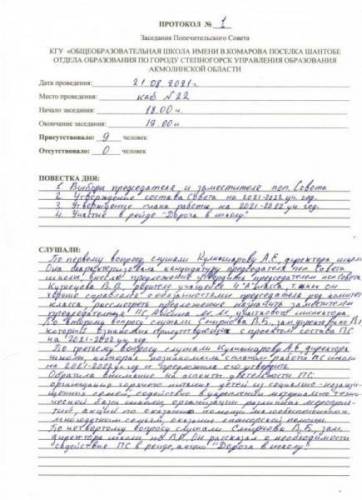 ПРОТОКОЛ № 1
Заседания Попечительского Совета
КГУ «ОБЩЕОБРАЗОВАТЕЛЬНАЯ ШКОЛА ИМЕНИ В.КОМАРОВА ПОСЕЛКА ШАНТОБЕ
ОТДЕЛА ОБРАЗОВАНИЯ ПО ГОРОДУ СТЕПНОГОРСК УПРАВЛЕНИЯ ОБРАЗОВАНИЯ
АКМОЛИНСКОЙ ОБЛАСТИ
Дата проведения: 21.08.2021г.
Место проведения: каб №22
Начало заседания: 18.00 ч.
Окончание заседания: 19.00 ч.
Присутствовало: 9 человек
Отсутствовало: 0 человек
ПОВЕСТКА ДНЯ:
1. Выборы председателя и заместителя поп. Совета
2. Утверждение состава Совета на 2021-2022 уч. год.
3. Утверждение плана работы на 2021-2022 уч. год.
4. Участие в рейде "Дорога в школу"
СЛУШАЛИ:
По первому вопросу слушали А.Е., директора школы
Она охарактеризовала кандидатуру председателя поп. Совета
школы, внесла предложение председателя поп. Совета
Кузнецова В.О. родителя учащегося 4 "А" класса, т.к. он
хорошо справлялся с обязанностями председателя род. комитета
класса, рассмотреть предложение назначить заместителем
председателя ПС
По второму вопросу слушали Смирнова В.Б., зам. директора по ВР,
который ознакомил присутствующих с проектом состава ПС
на 2021-2022 уч. год.
По третьему вопросу слушали директора
школы, которая ознакомила с планом работы ПС школы
на 2021-2022 уч. год и предложила его утвердить.
Обратила внимание на аспекты деятельности ПС:
организация горячего питания детей из социально-незащи-
щенных семей, содействие в укреплении материально-техни-
ческой базы школы, организации различных мероприя-
тий, акций по оказанию помощи малообеспеченным и
многодетным семьям, оказание спонсорской помощи.
По четвертому вопросу слушали Смирнова В.Б., зам.
директора школы по ВР. Он рассказал о необходимости
содействия ПС в рейде, акции "Дорога в школу".